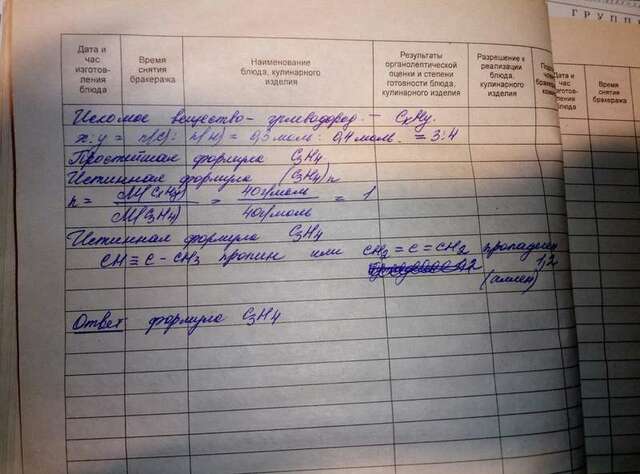 ГРУПП
Дата и час изготов- ления блюда
Время снятия бракеража
Наименование блюда, кулинарного изделия
Результаты органолептической оценки и степени готовности блюда, кулинарного изделия
Разрешение к реализации блюда, кулинарного изделия
Дата и час изготов- ления блюда
Время снятия бракеража
Искомое вещество - углеводород - CxHy.
x:y = n(C) : n(H) = 0,3 моль : 0,4 моль = 3:4
Простейшая формула C3H4
Истинная формула (C3H4)n
n = M(CxHy) / M(C3H4) = 40г/моль / 40г/моль = 1
Истинная формула C3H4
CH≡C-CH3 пропин или CH2=C=CH2 пропадиен 1,2
(аллен)
Ответ формула C3H4